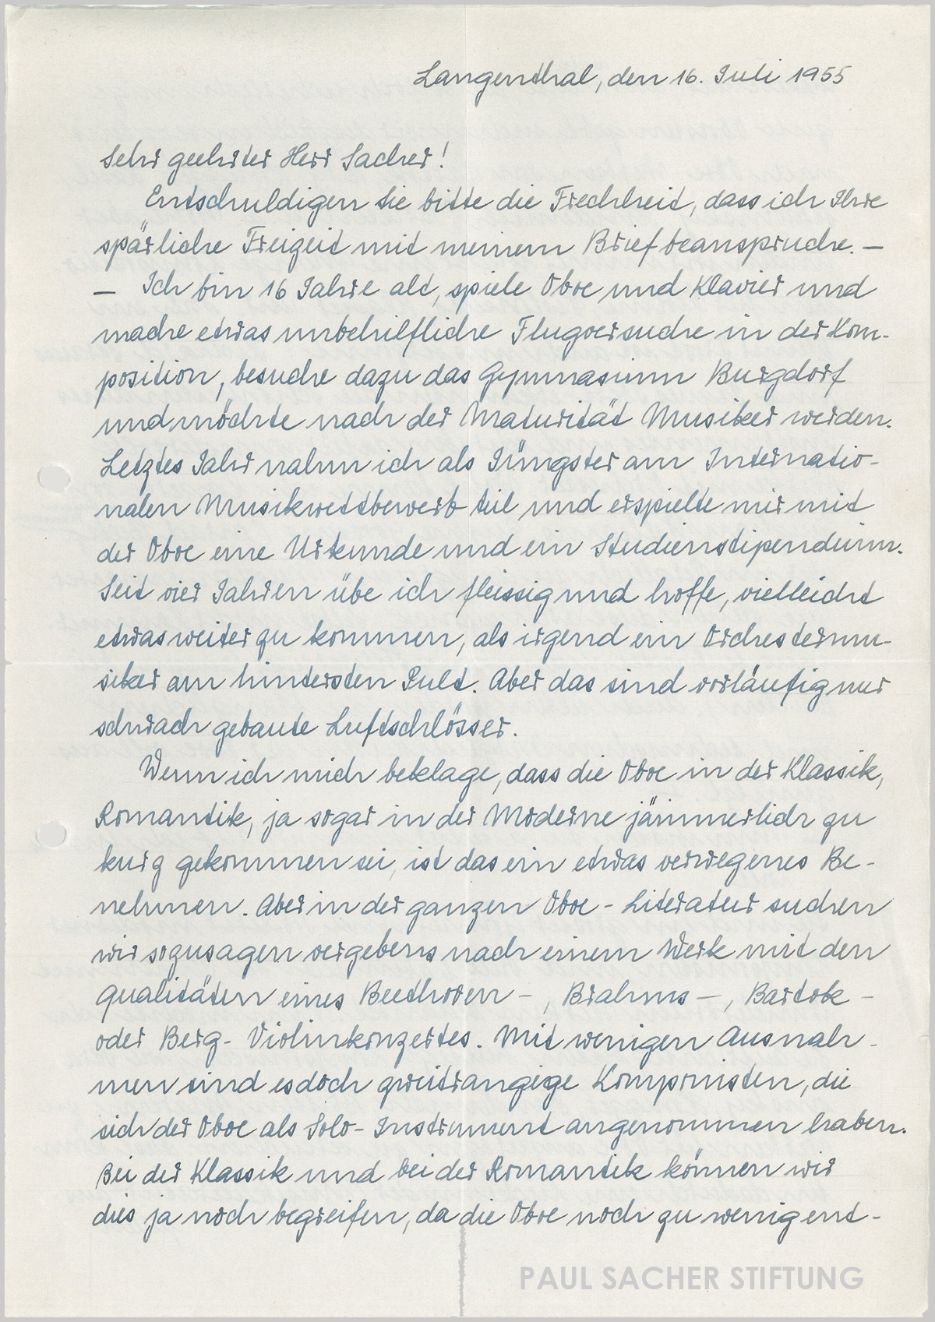 Langenthal, den 16. Juli 1955
Sehr geehrter Herr Sacher!
Entschuldigen Sie bitte die Frechheit, dass ich Ihre
spärliche Freizeit mit meinem Brief beanspruche. —
— Ich bin 16 Jahre alt, spiele Oboe und Klavier und
mache etwas unbehilfliche Flugversuche in der Kom-
position, besuche dazu das Gymnasium Burgdorf
und möchte nach der Maturität Musiker werden.
Letztes Jahr nahm ich als Jüngster am Internatio-
nalen Musikwettbewerb teil und erspielte mir mit
der Oboe eine Urkunde und ein Studienstipendium.
Seit vier Jahren übe ich fleissig und hoffe, vielleicht
etwas weiter zu kommen, als irgend ein Orchestermu-
siker am hintersten Pult. Aber das sind vorläufig nur
schwach gebaute Luftschlösser.
Wenn ich mich beklage, dass die Oboe in der Klassik,
Romantik, ja sogar in der Moderne jämmerlich zu
kurz gekommen sei, ist das ein etwas verwegenes Be-
nehmen. Aber in der ganzen Oboe-Literatur suchen
wir sozusagen vergebens nach einem Werk mit den
Qualitäten eines Beethoven-, Brahms-, Bartok-
oder Berg-Violinkonzertes. Mit wenigen Ausnah-
men sind es doch zweitrangige Komponisten, die
sich der Oboe als Solo-Instrument angenommen haben.
Bei der Klassik und bei der Romantik können wir
dies ja noch begreifen, da die Oboe noch zu wenig ent-
PAUL SACHER STIFTUNG